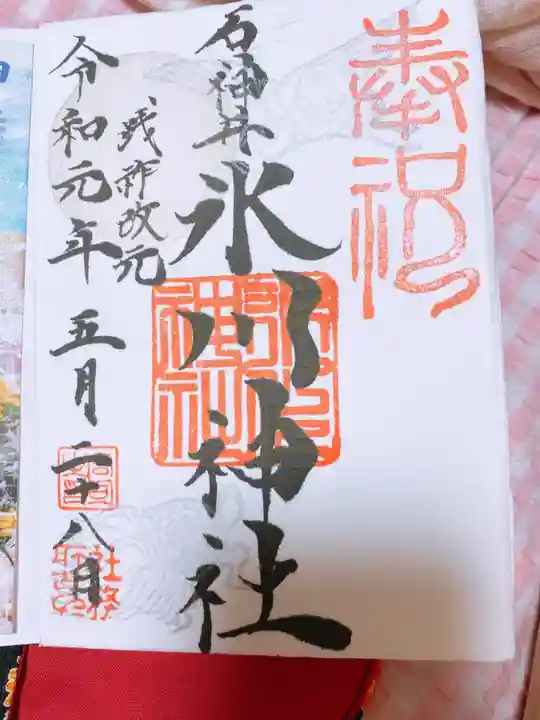 奉祝
石神井
氷川神社
践祚改元
令和元年五月二十八日
社務